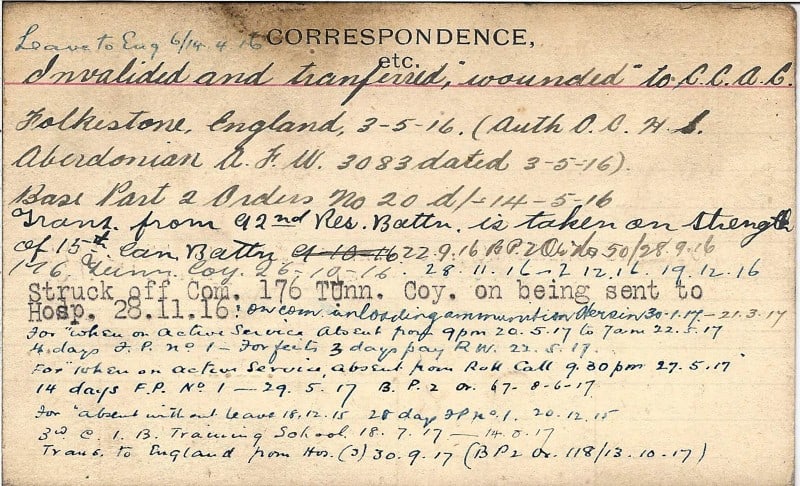 Leave to Eng 6/14.4.16
CORRESPONDENCE,
etc.
Invalided and tranferred, "wounded" to C.C.A.C.
Folkestone, England, 3-5-16. (Auth O.C. H.S.
Aberdonian A.F.W. 3083 dated 3-5-16).
Base Part 2 Orders No 20 d/- 14-5-16
Trans. from 92nd Res. Battn. is taken on strength
of 15th Can. Battn 9-10-16 22.9.16 B.P.2 Order 50/28.9.16
176, Tunn. Coy. 26-10-16. 28.11.16 - 2.12.16. 19.12.16
Struck off Com. 176 Tunn. Coy. on being sent to
Hosp. 28.11.16. on com. unloading ammunition 30-1-17 - 21-3-17
For "when on active Service Absent from 9pm 20.5.17 to 7am 22.5.17
4 days F.P. no 1 - Forfeits 3 days pay R.W. 22.5.17.
For "when on active Service, absent from Roll Call 9.30pm 27.5.17"
14 days F.P. No 1 - 29.5.17 B.P.2 or. 67-8-6-17.
For "absent without Leave 18.12.15 28 day FP no.1. 20.12.15
3rd C.I.B. Training School. 18.7.17 - 14.8.17
Trans. to England from Hos. (S) 30.9.17 (BP2 Or. 118/13.10.17)